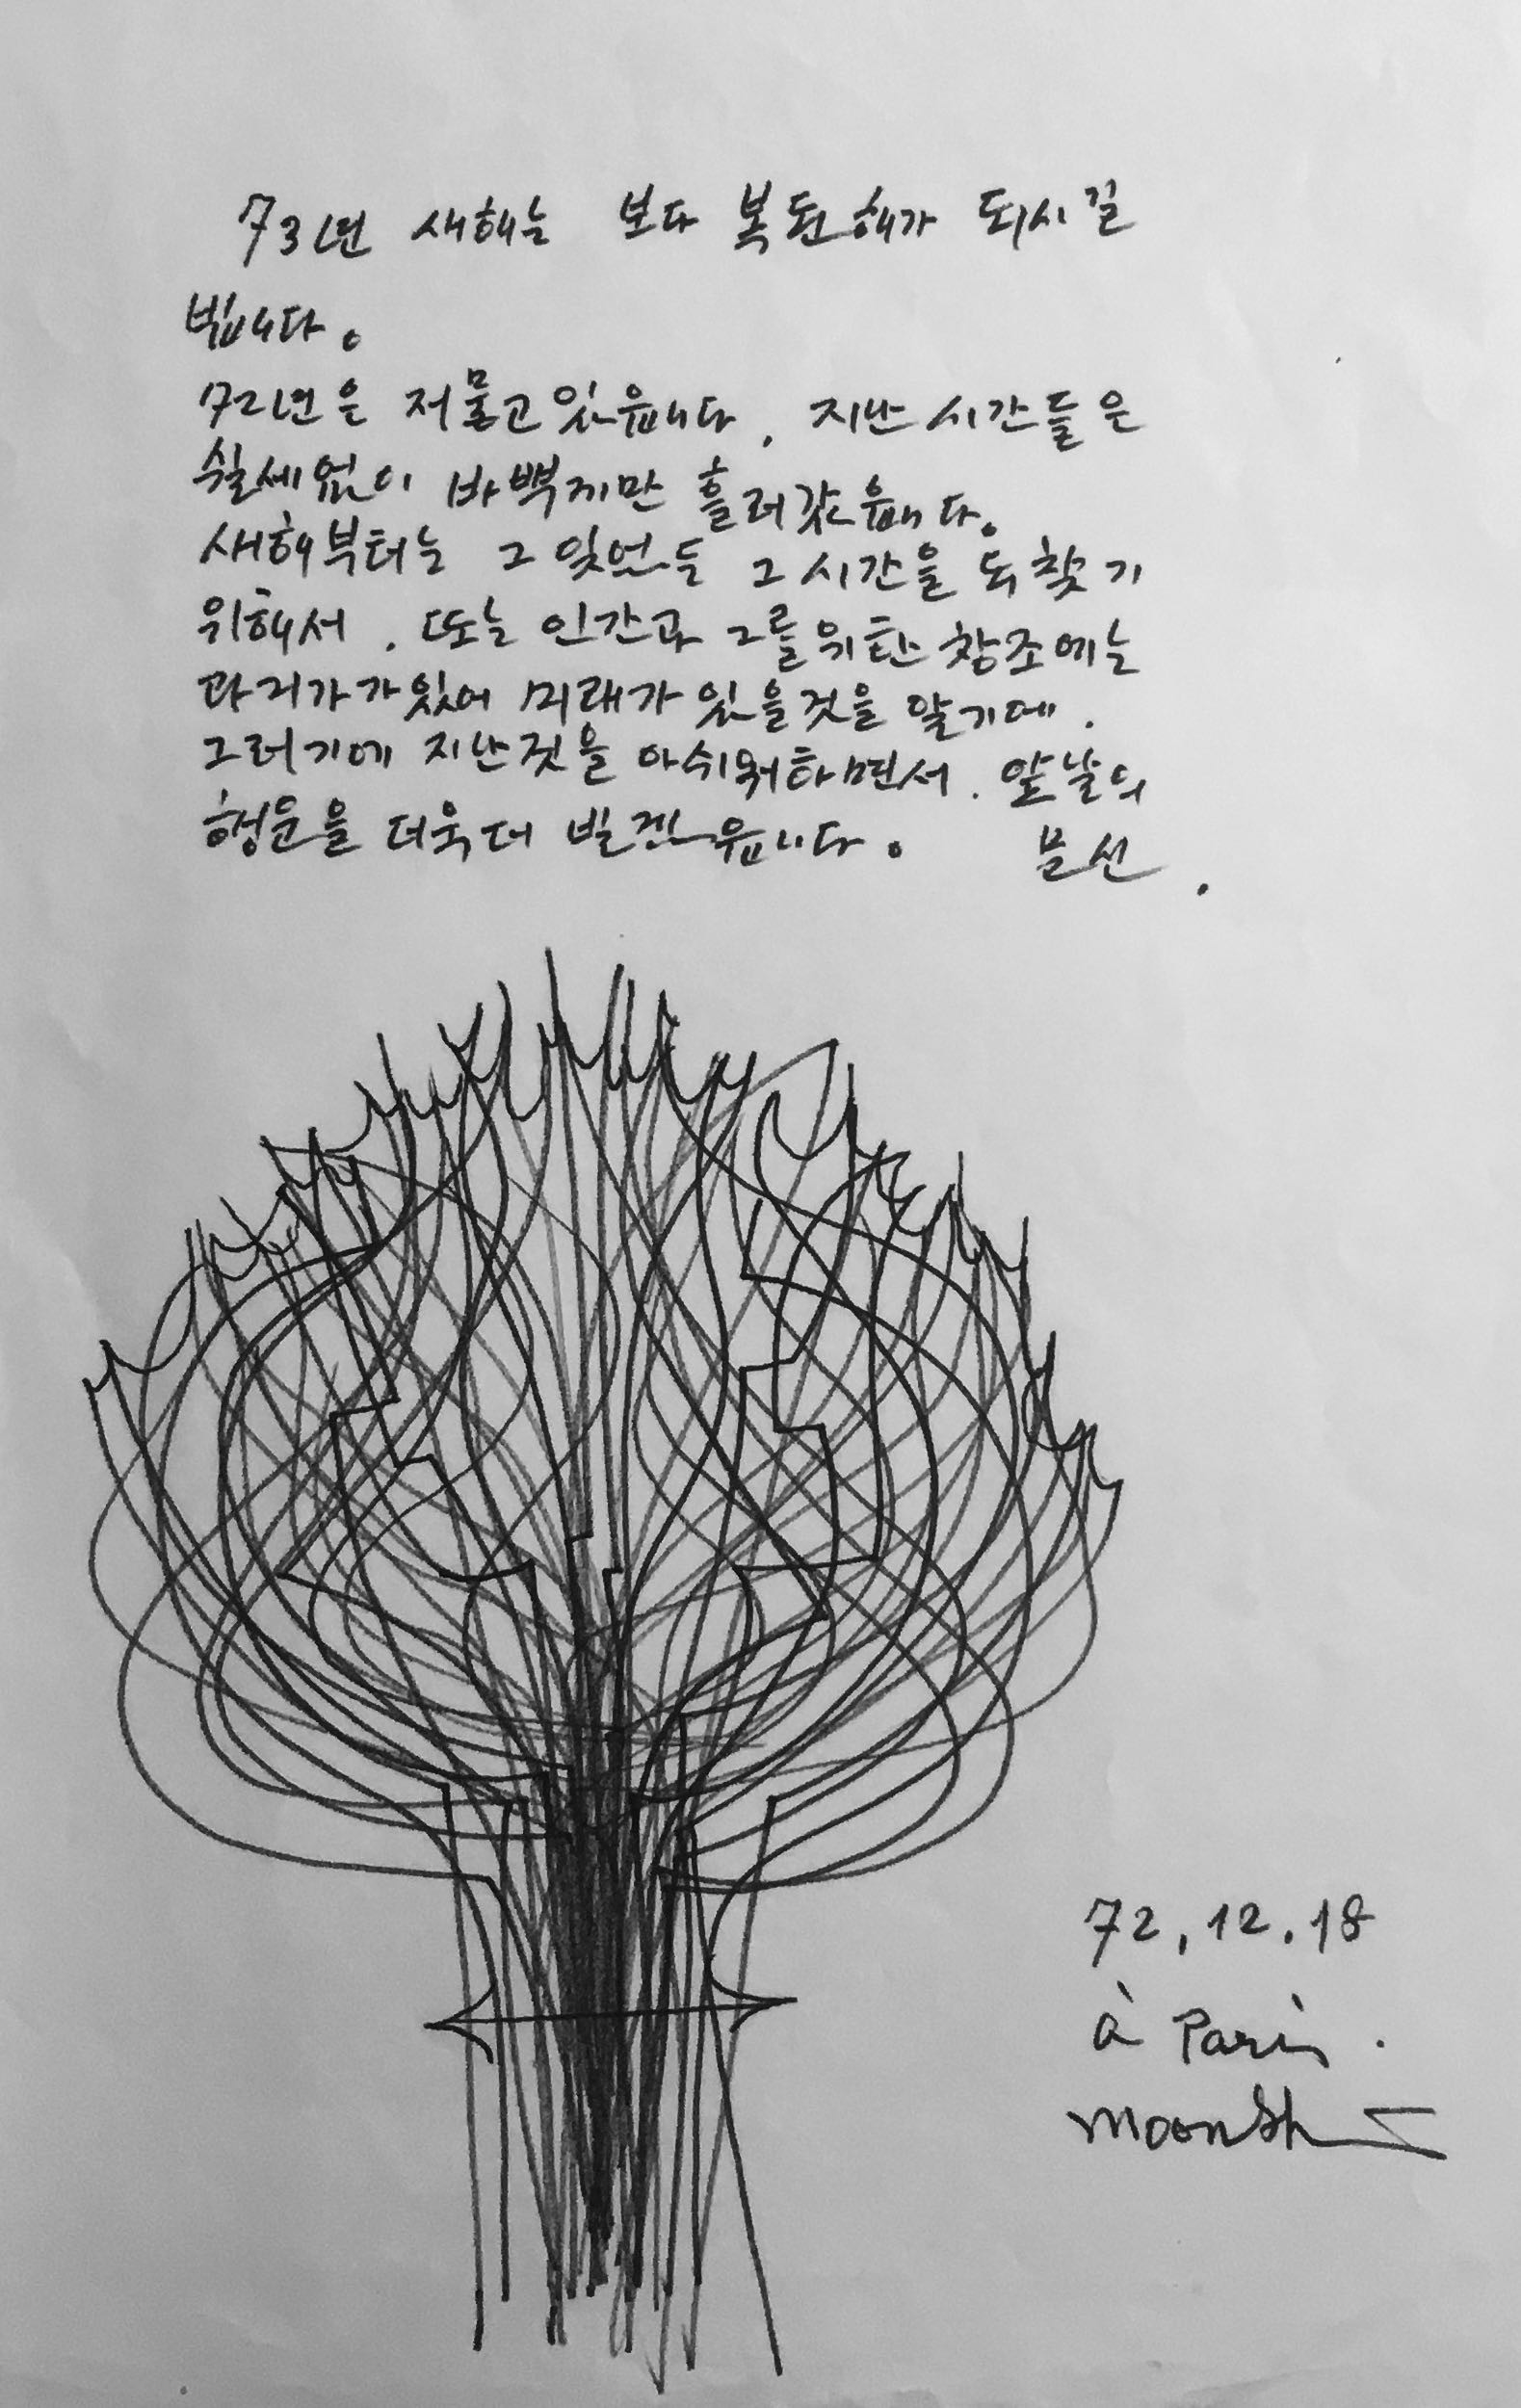 73년 새해는 보다 복된 해가 되시길
빕니다.
72년은 저물고 있읍니다. 지난 시간들은
쉴세없이 바빴지만 흘러갔읍니다.
새해부터는 그 잊었든 그 시간을 되찾기
위해서. 또는 인간과 그를위한 창조에는
과거가 있어 미래가 있을것을 알기에.
그러기에 지난것을 아쉬워하면서. 앞날의
행운을 더욱더 빌겠읍니다. 문선.
72, 12. 18
à Paris.
moonsh